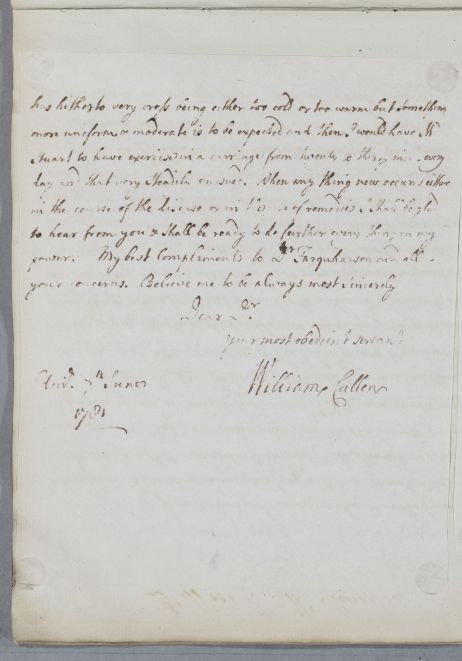 has hitherto very cross being either too cold or too warm but something
more uniform & moderate is to be expected and then I would have Mr
Stuart to have exercise in a carriage from twenty to thirty miles every
day and that very steadily pursued. When any thing new occurs either
in the course of the disease or in the use of remedies I shall be glad
to hear from you & shall be ready to do further every thing in my
power. My best Compliments to Dr Farquharson and all
your concerns. Believe me to be always most sincerely
Dear Dr
your most obedient servant
William Cullen
Edinr 7th June
1784